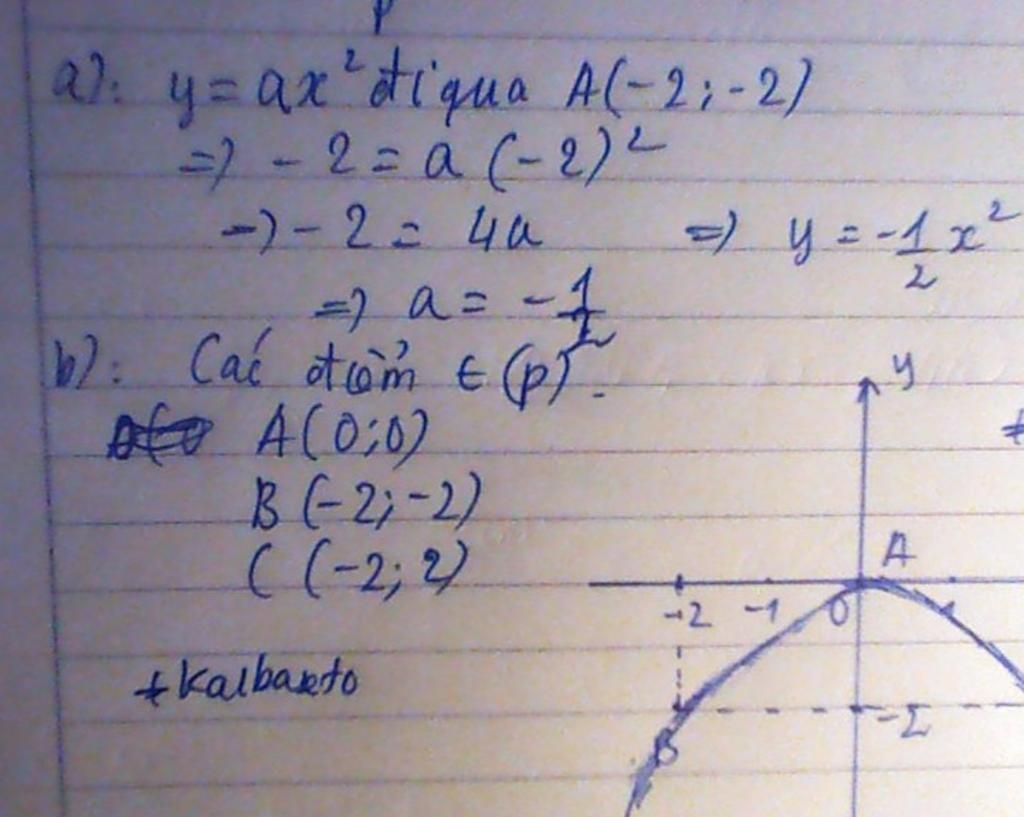 a): y = ax² đi qua A(-2; -2)
=> -2 = a (-2)²
=> -2 = 4a => y = -1/2 x²
=> a = -1/2
b): Các điểm ∈ (p).
A(0;0)
B (-2; -2)
C (-2; 2)
y
A
-2 -1 0
-2
B